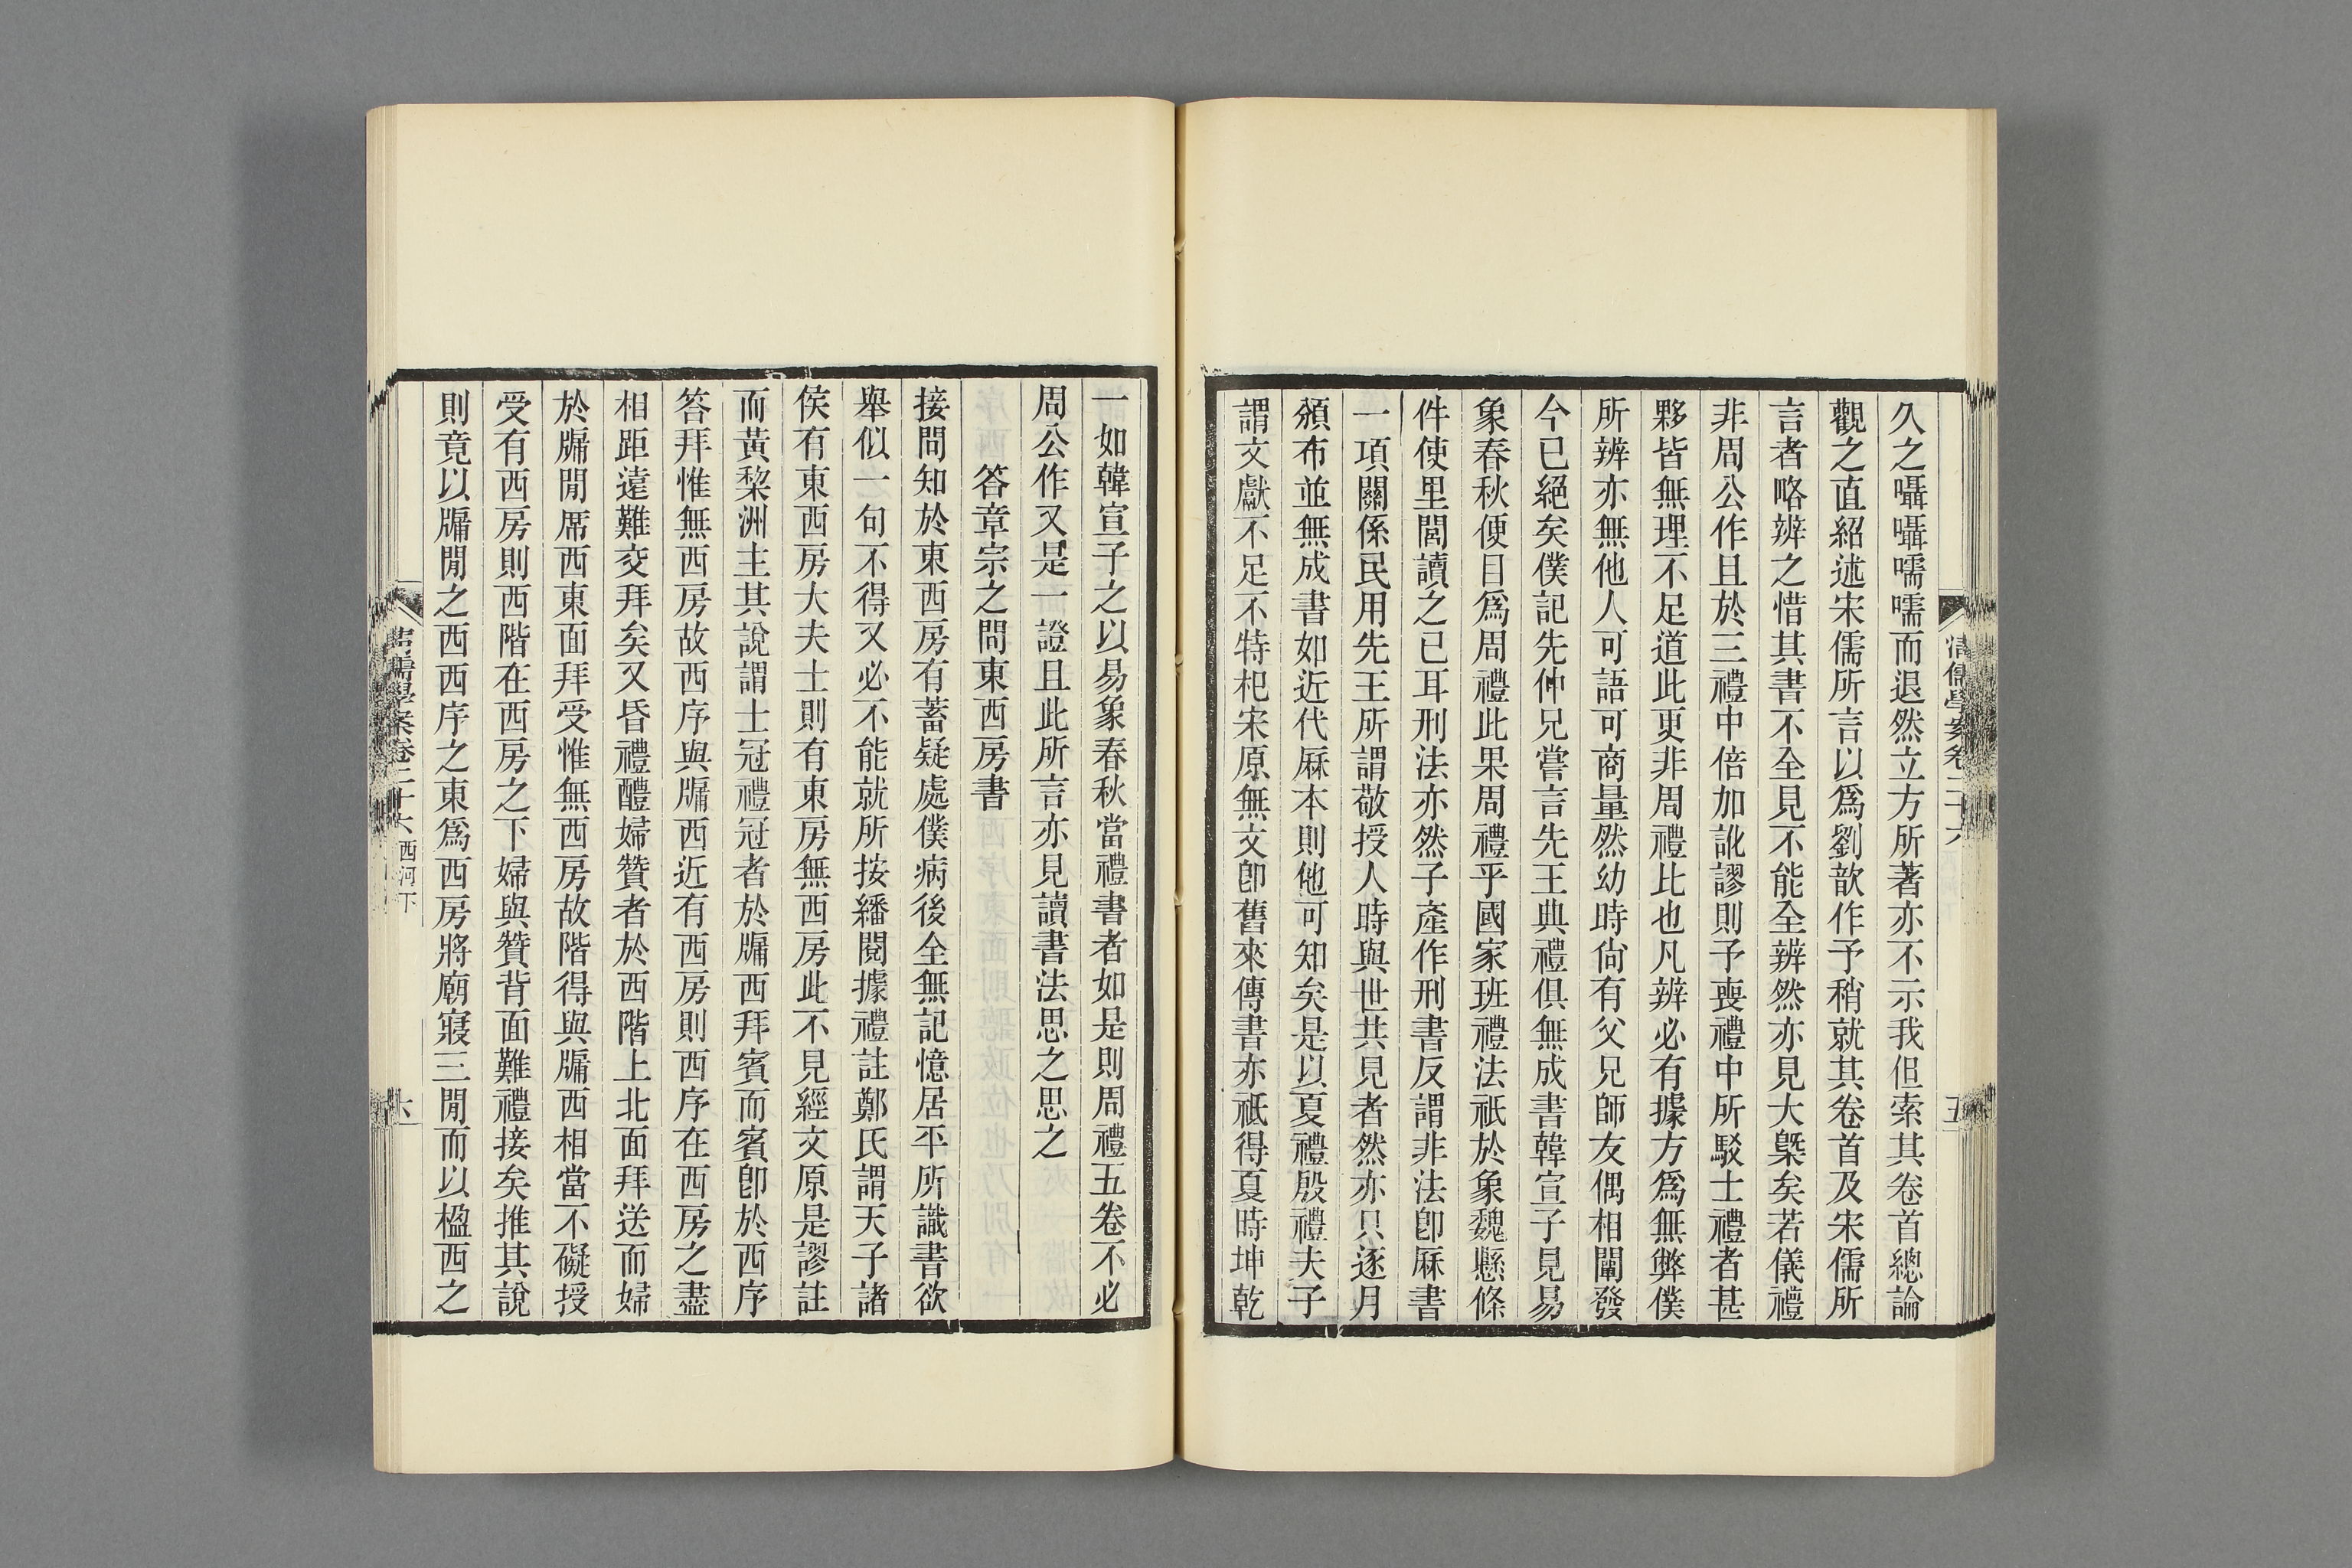 久之囁囁嚅嚅而退然立方所著亦不示我但索其卷首總論
觀之直紹述宋儒所言以爲劉歆作予稍就其卷首及宋儒所
言者略辨之惜其書不全見不能全辨然亦見大槩矣若儀禮
非周公作且於三禮中倍加訛謬則予喪禮中所駁士禮者甚
夥皆無理不足道此更非周禮比也凡辨必有據方爲無弊僕
所辨亦無他人可語可商量然幼時尙有父兄師友偶相闡發
今已絕矣僕記先仲兄嘗言先王典禮俱無成書韓宣子見易
象春秋便目爲周禮此果周禮乎國家班禮法祇於象魏懸條
件使里閭讀之已耳刑法亦然子產作刑書反謂非法卽厤書
一項關係民用先王所謂敬授人時與世共見者然亦只逐月
頒布並無成書如近代厤本則他可知矣是以夏禮殷禮夫子
謂文獻不足不特杞宋原無文卽舊來傳書亦祇得夏時坤乾
清儒學案卷二十六
五
一如韓宣子之以易象春秋當禮書者如是則周禮五卷不必
周公作又是一證且此所言亦見讀書法思之思之
答章宗之問東西房書
接問知於東西房有蓄疑處僕病後全無記憶居平所識書欲
舉似一句不得又必不能就所按繙閱據禮註鄭氏謂天子諸
侯有東西房大夫士則有東房無西房此不見經文原是謬註
而黃棃洲主其說謂士冠禮冠者於牖西拜賓而賓卽於西序
答拜惟無西房故西序與牖西近有西房則西序在西房之盡
相距遠難交拜矣又昏禮醴婦贊者於西階上北面拜送而婦
於牖閒席西東面拜受惟無西房故階得與牖西相當不礙授
受有西房則西階在西房之下婦與贊背面難禮接矣推其說
則竟以牖閒之西西序之東爲西房將廟寢三閒而以楹西之
清儒學案卷二十六 西河下
六